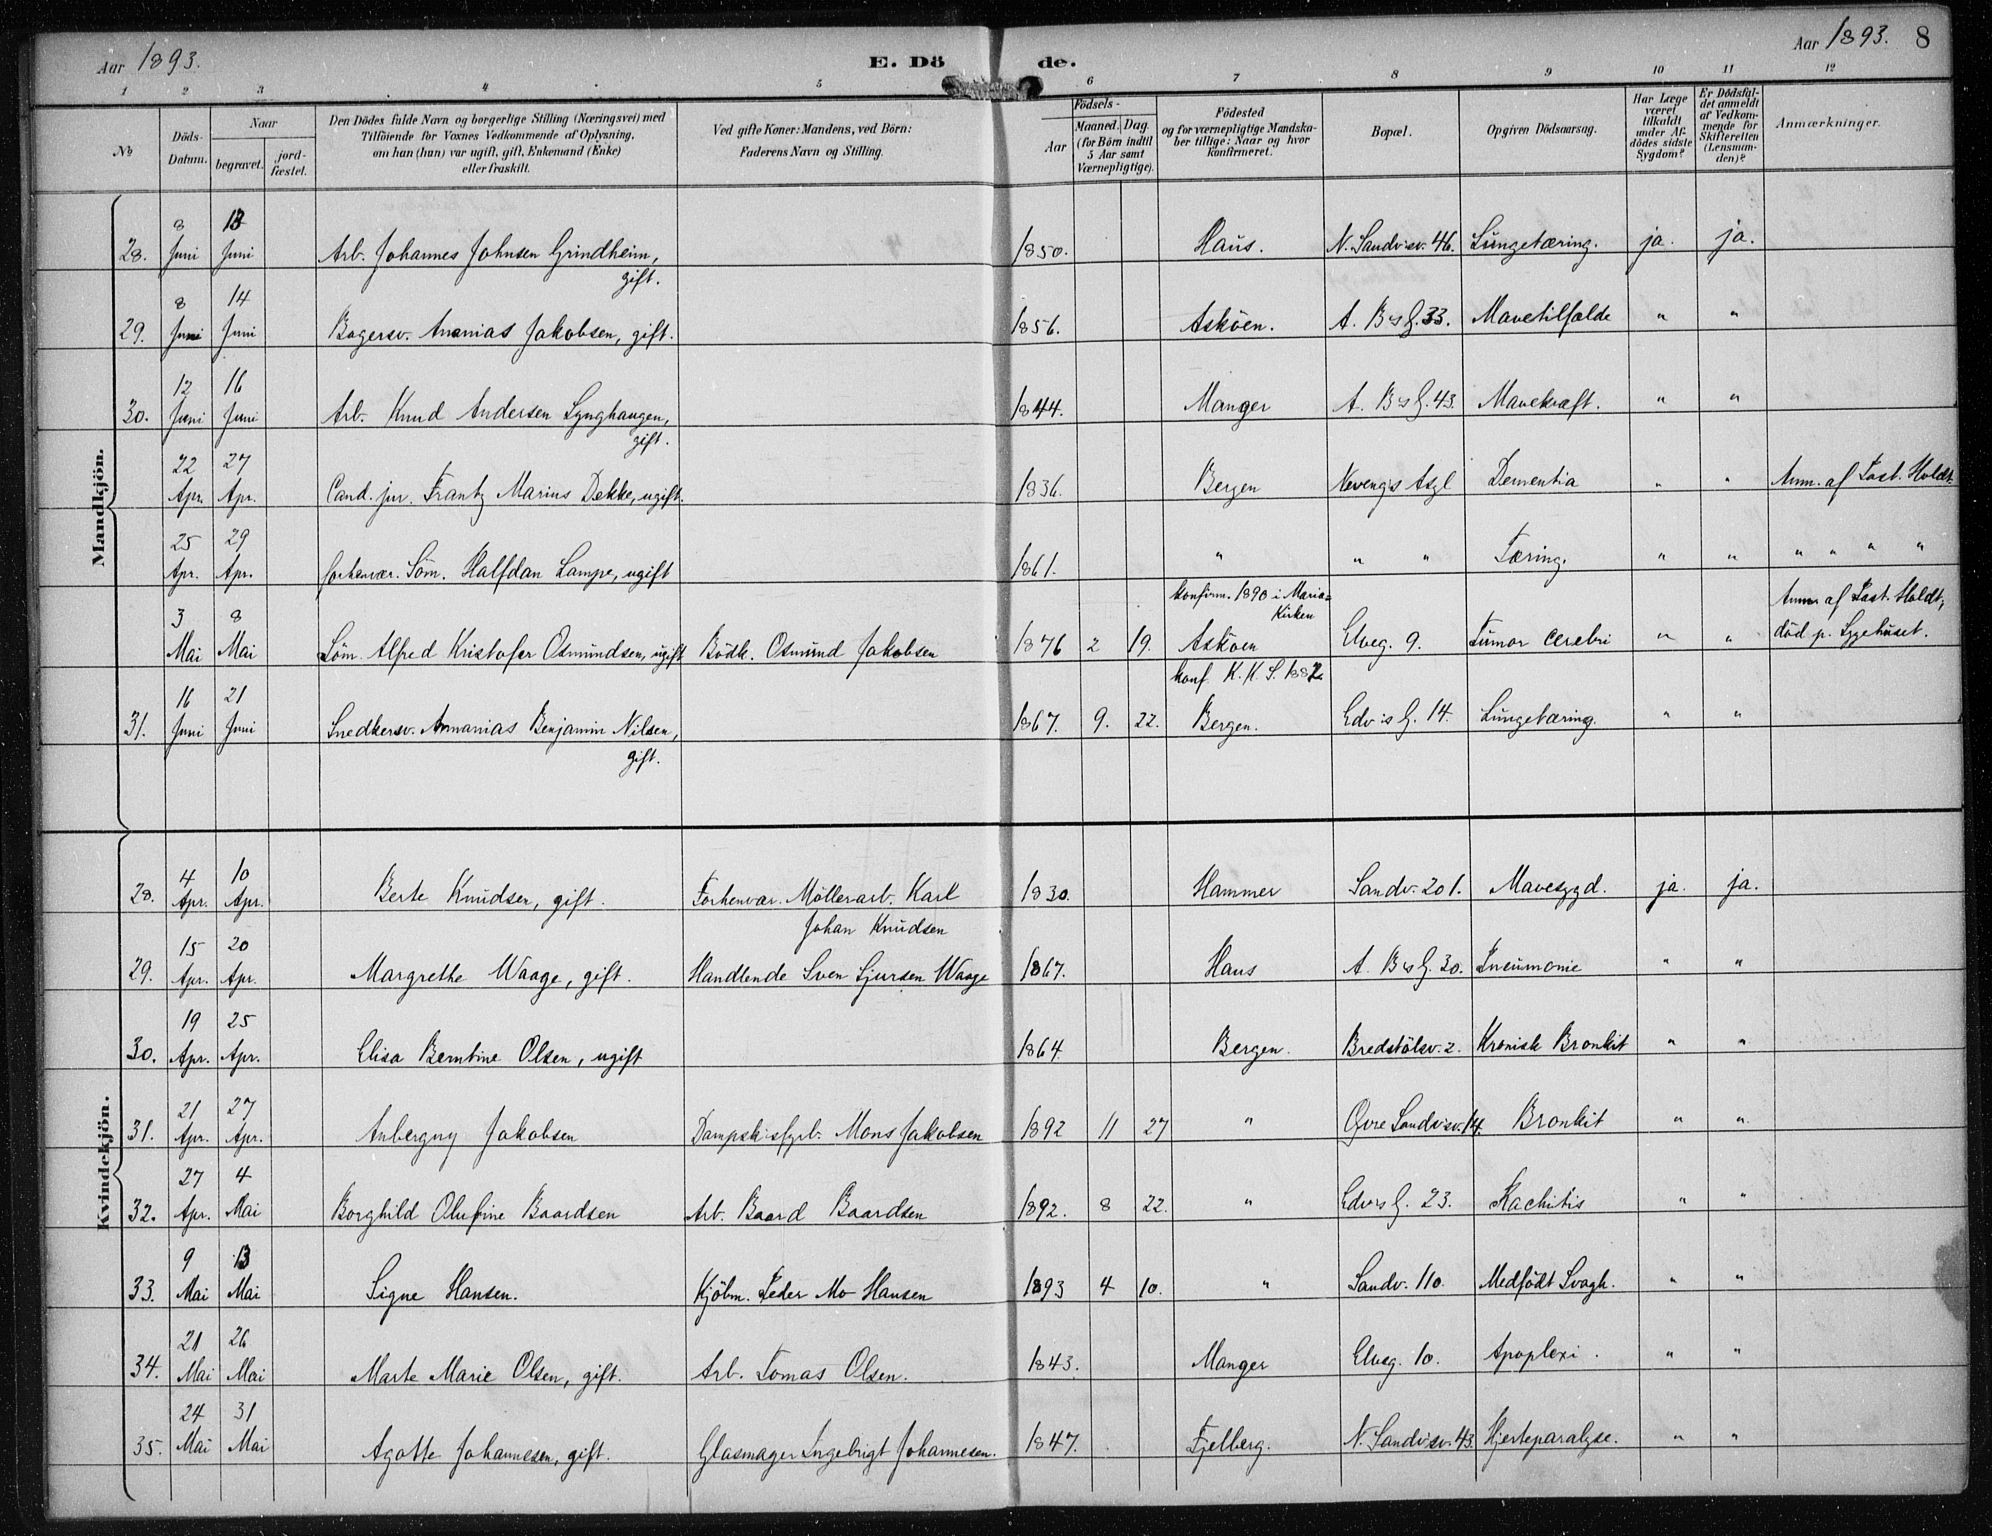 Aar 1893. E. Dö de. Aar 1893. 8
1 2 3 4 5 6 7 8 9 10 11 12
No
Döds-
Datum.
Naar
begravet.
jord-
fæstet.
Den Dödes fulde Navn og borgerlige Stilling (Næringsvei) med
Tilföiende for Voxnes Vedkommende af Oplysning,
om han (hun) var ugift, gift, Enkemand (Enke)
eller fraskilt.
Ved gifte Koner: Mandens, ved Börn:
Faderens Navn og Stilling.
Födsels-
Aar
Maaned. Dag
(for Börn indtil
5 Aar samt
Værnepligtige).
Födested
og for værnepligtige Mandska-
ber tillige: Naar og hvor
konfirmeret.
Bopæl.
Opgiven Dödsaarsag.
Har Læge
været
tilkaldt
under Af-
dödes sidste
Sygdom?
Er Dödsfal-
det anmeldt
af Vedkom-
mende for
Skifteretten
(Lensman-
den)?
Anmærkninger.
Mandkjön.
8 13
28. Juni Juni Arb. Johannes Johnsen Grindheim, 1850. Haus. N. Sandvsv. 46. Lungetæring. ja. ja.
gift.
8 14
29. Juni Juni Bagersv. Ananias Jakobsen, gift. 1856. Asköen. A. BsG. 33. Mavetilfælde " "
12 16
30. Juni Juni Arb. Knud Andersen Lynghaugen, 1844. Manger A. BsG. 43. Mavekræft. " "
gift.
22 27
Apr. Apr. Cand. jur. Frantz Marius Dekke, ugift. 1836. Bergen Nevengs Asyl Dementia " " Anm. af Past. Holdt.
25 29
Apr. Apr. forhenvær. Söm. Halfdan Lampe, ugift 1861. " " " Tæring. " " " " " "
konfirm. 1890 i Maria=
Kirken
Anm. af Past. Holdt,
3 8
Mai Mai Söm. Alfred Kristofer Osmundsen, ugift Bödk. Osmund Jakobsen 1876 2 19. Asköen Elveg. 9. Tumor cerebri " " död p. Sygehuset.
konf. K. K. S. 1882
16 21
31. Juni Juni Snedkersv. Annanias Benjamin Nilsen, 1867. 9. 22. Bergen. EdvsG. 14. Lungetæring. " "
gift.
Kvindekjön.
4 10
28. Apr. Apr. Berte Knudsen, gift. Forhenvær. Möllerarb. Karl 1830. Hammer Sandv. 201. Mavesygd. ja. ja.
Johan Knudsen
15 20
29. Apr. Apr. Margrethe Waage, gift. Handlende Sven Sjursen Waage 1867. Haus A. BsG. 30. Pneumonie " "
19 25
30. Apr. Apr. Elisa Berntine Olsen, ugift 1864. Bergen. Bredstölsv. 2. Kronisk Bronkit " "
21 27
31. Apr. Apr. Anbergny Jakobsen Dampskibsfyrb. Mons Jakobsen 1892 11 27 " Övre Sandvsv. 14. Bronkit " "
27 4
32. Apr. Mai Borghild Olufine Baardsen Arb. Baard Baardsen 1892. 8 22. " EdvsG. 23. Rachitis " "
9 13
33. Mai Mai Signe Hansen. Kjöbm. Peder Mo Hansen 1893 4 10. " Sandv. 110. Medfödt Svagh. " "
21 26
34. Mai Mai Marte Marie Olsen, gift. Arb. Tomas Olsen. 1843. Manger Elveg. 10. Apoplexi. " "
24 31
35. Mai Mai Agatte Johannesen, gift. Glasmager Ingebrigt Johannesen. 1847. Fjelberg. N. Sandvsv. 43. Hjerteparalyse. " "